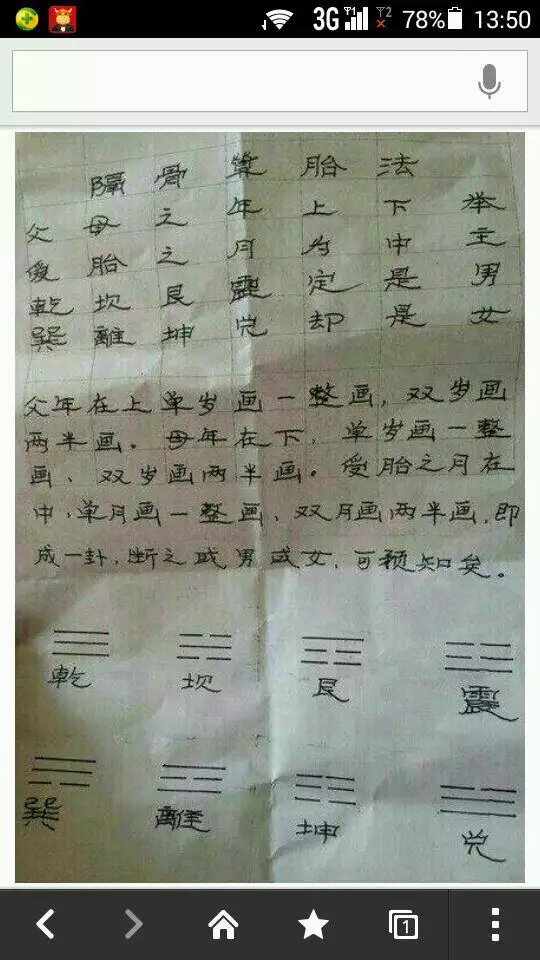 3G 78% 13:50
隔骨算胎法
父母之年上下举
受胎之月为中主
乾坎艮震定是男
巽離坤兑却是女
父年在上单岁画一整画，双岁画
两半画。母年在下，单岁画一整
画、双岁画两半画。受胎之月在
中，单月画一整画、双月画两半画，即
成一卦，断之或男或女，可预知矣。
乾 坎 艮 震
巽 離 坤 兑
1